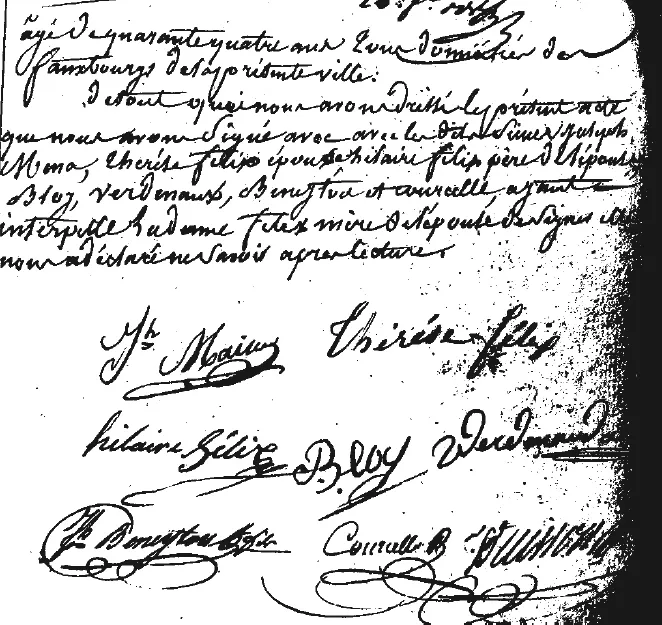 âgé de quarante quatre ans tous domiciliés des
fauxbourgs de la présente ville.
De tout quoi nous avons dressé le présent acte
que nous avons signé avec avec les dits Sieurs Joseph
Therése felix épouse hilaire felix père de l'épouse
Bloy, verdenaux, Beneyton et courcelle, ayant
interpellé la dame felix mère de l'épouse de signer elle
nous a déclaré ne savoir après lecture.
Jh
Thérése félix
hilaire félix
B. loy
Verdenaud
Jh Beneyton
Courcelle